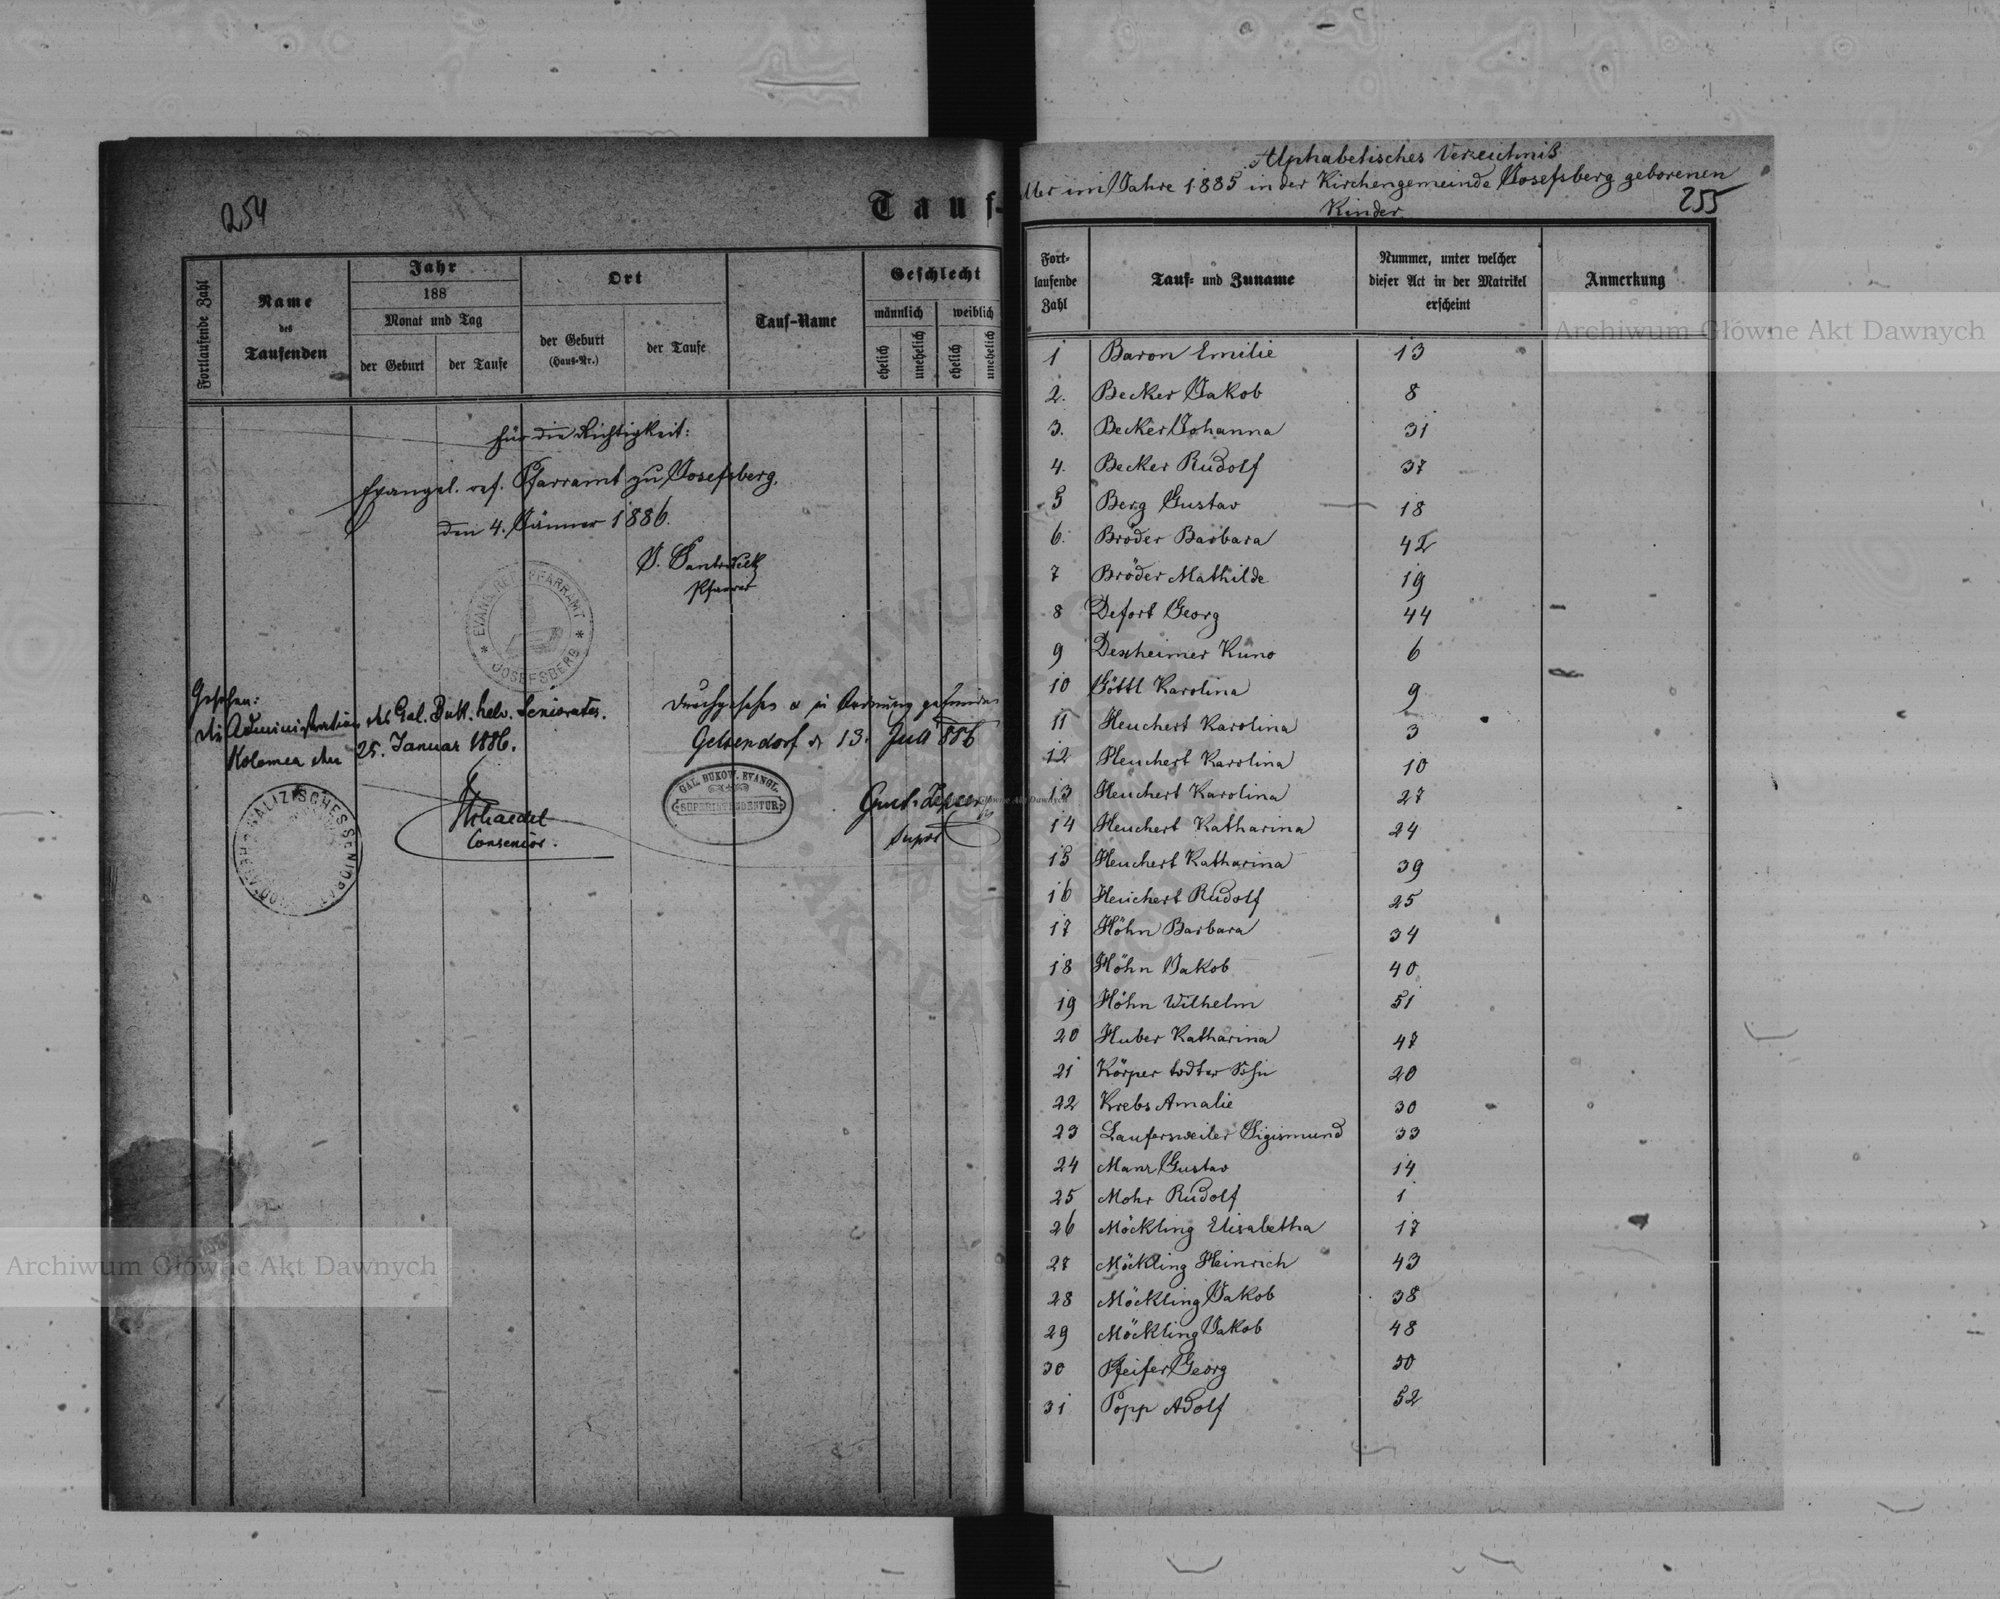 254
Tauf-
Fortlaufende Zahl
Name
des
Taufenden
Jahr
188
Monat und Tag
der Geburt
der Taufe
Ort
der Geburt
(Haus-Nr.)
der Taufe
Tauf-Name
Geschlecht
männlich
weiblich
ehelich
unehelich
ehelich
unehelich
Für die Richtigkeit:
Evangel. ref. Pfarramt zu Josefsberg,
den 4. Jänner 1886.
Pfarrer
EVANG. REF. PFARRAMT
* JOSEFSBERG *
Gesehen:
die Administration des Gal. Buk. helv. Seniorates.
Kolomea den 25. Januar 1886.
Consenior.
Durchgesehen & in Ordnung gefunden
Gelsendorf d. 13. Juli 886
GAL. BUKOW. EVANGL.
SUPERINTENDENTUR
Supdt
Alphabetisches Verzeichniß
aller im Jahre 1885 in der Kirchengemeinde Josefsberg geborenen
Kinder
255
Fort-
laufende
Zahl
Tauf- und Zuname
Nummer, unter welcher
dieser Act in der Matrikel
erscheint
Anmerkung
1 Baron Emilie 13
2. Becker Jakob 8
3. Becker Johanna 31
4. Becker Rudolf 37
5 Berg Gustav 18
6. Bröder Barbara 42
7 Bröder Mathilde 19
8 Defort Georg 44
9 Dexheimer Kuno 6
10 Göttl Karolina 9
11 Heuchert Karolina 3
12 Heuchert Karolina 10
13 Heuchert Karolina 27
14 Heuchert Katharina 24
15 Heuchert Katharina 39
16 Heuchert Rudolf 25
17 Höhn Barbara 34
18 Höhn Jakob 40
19 Höhn Wilhelm 51
20 Huber Katharina 47
21 Körper todter Sohn 20
22 Krebs Amalie 30
23 Laufersweiler Sigismund 33
24 Manz Gustav 14
25 Mohr Rudolf 1
26 Möckling Elisabetha 17
27 Möckling Heinrich 43
28 Möckling Jakob 38
29 Möckling Jakob 48
30 Pfeifer Georg 50
31 Popp Adolf 52
Archiwum Główne Akt Dawnych
Archiwum Główne Akt Dawnych